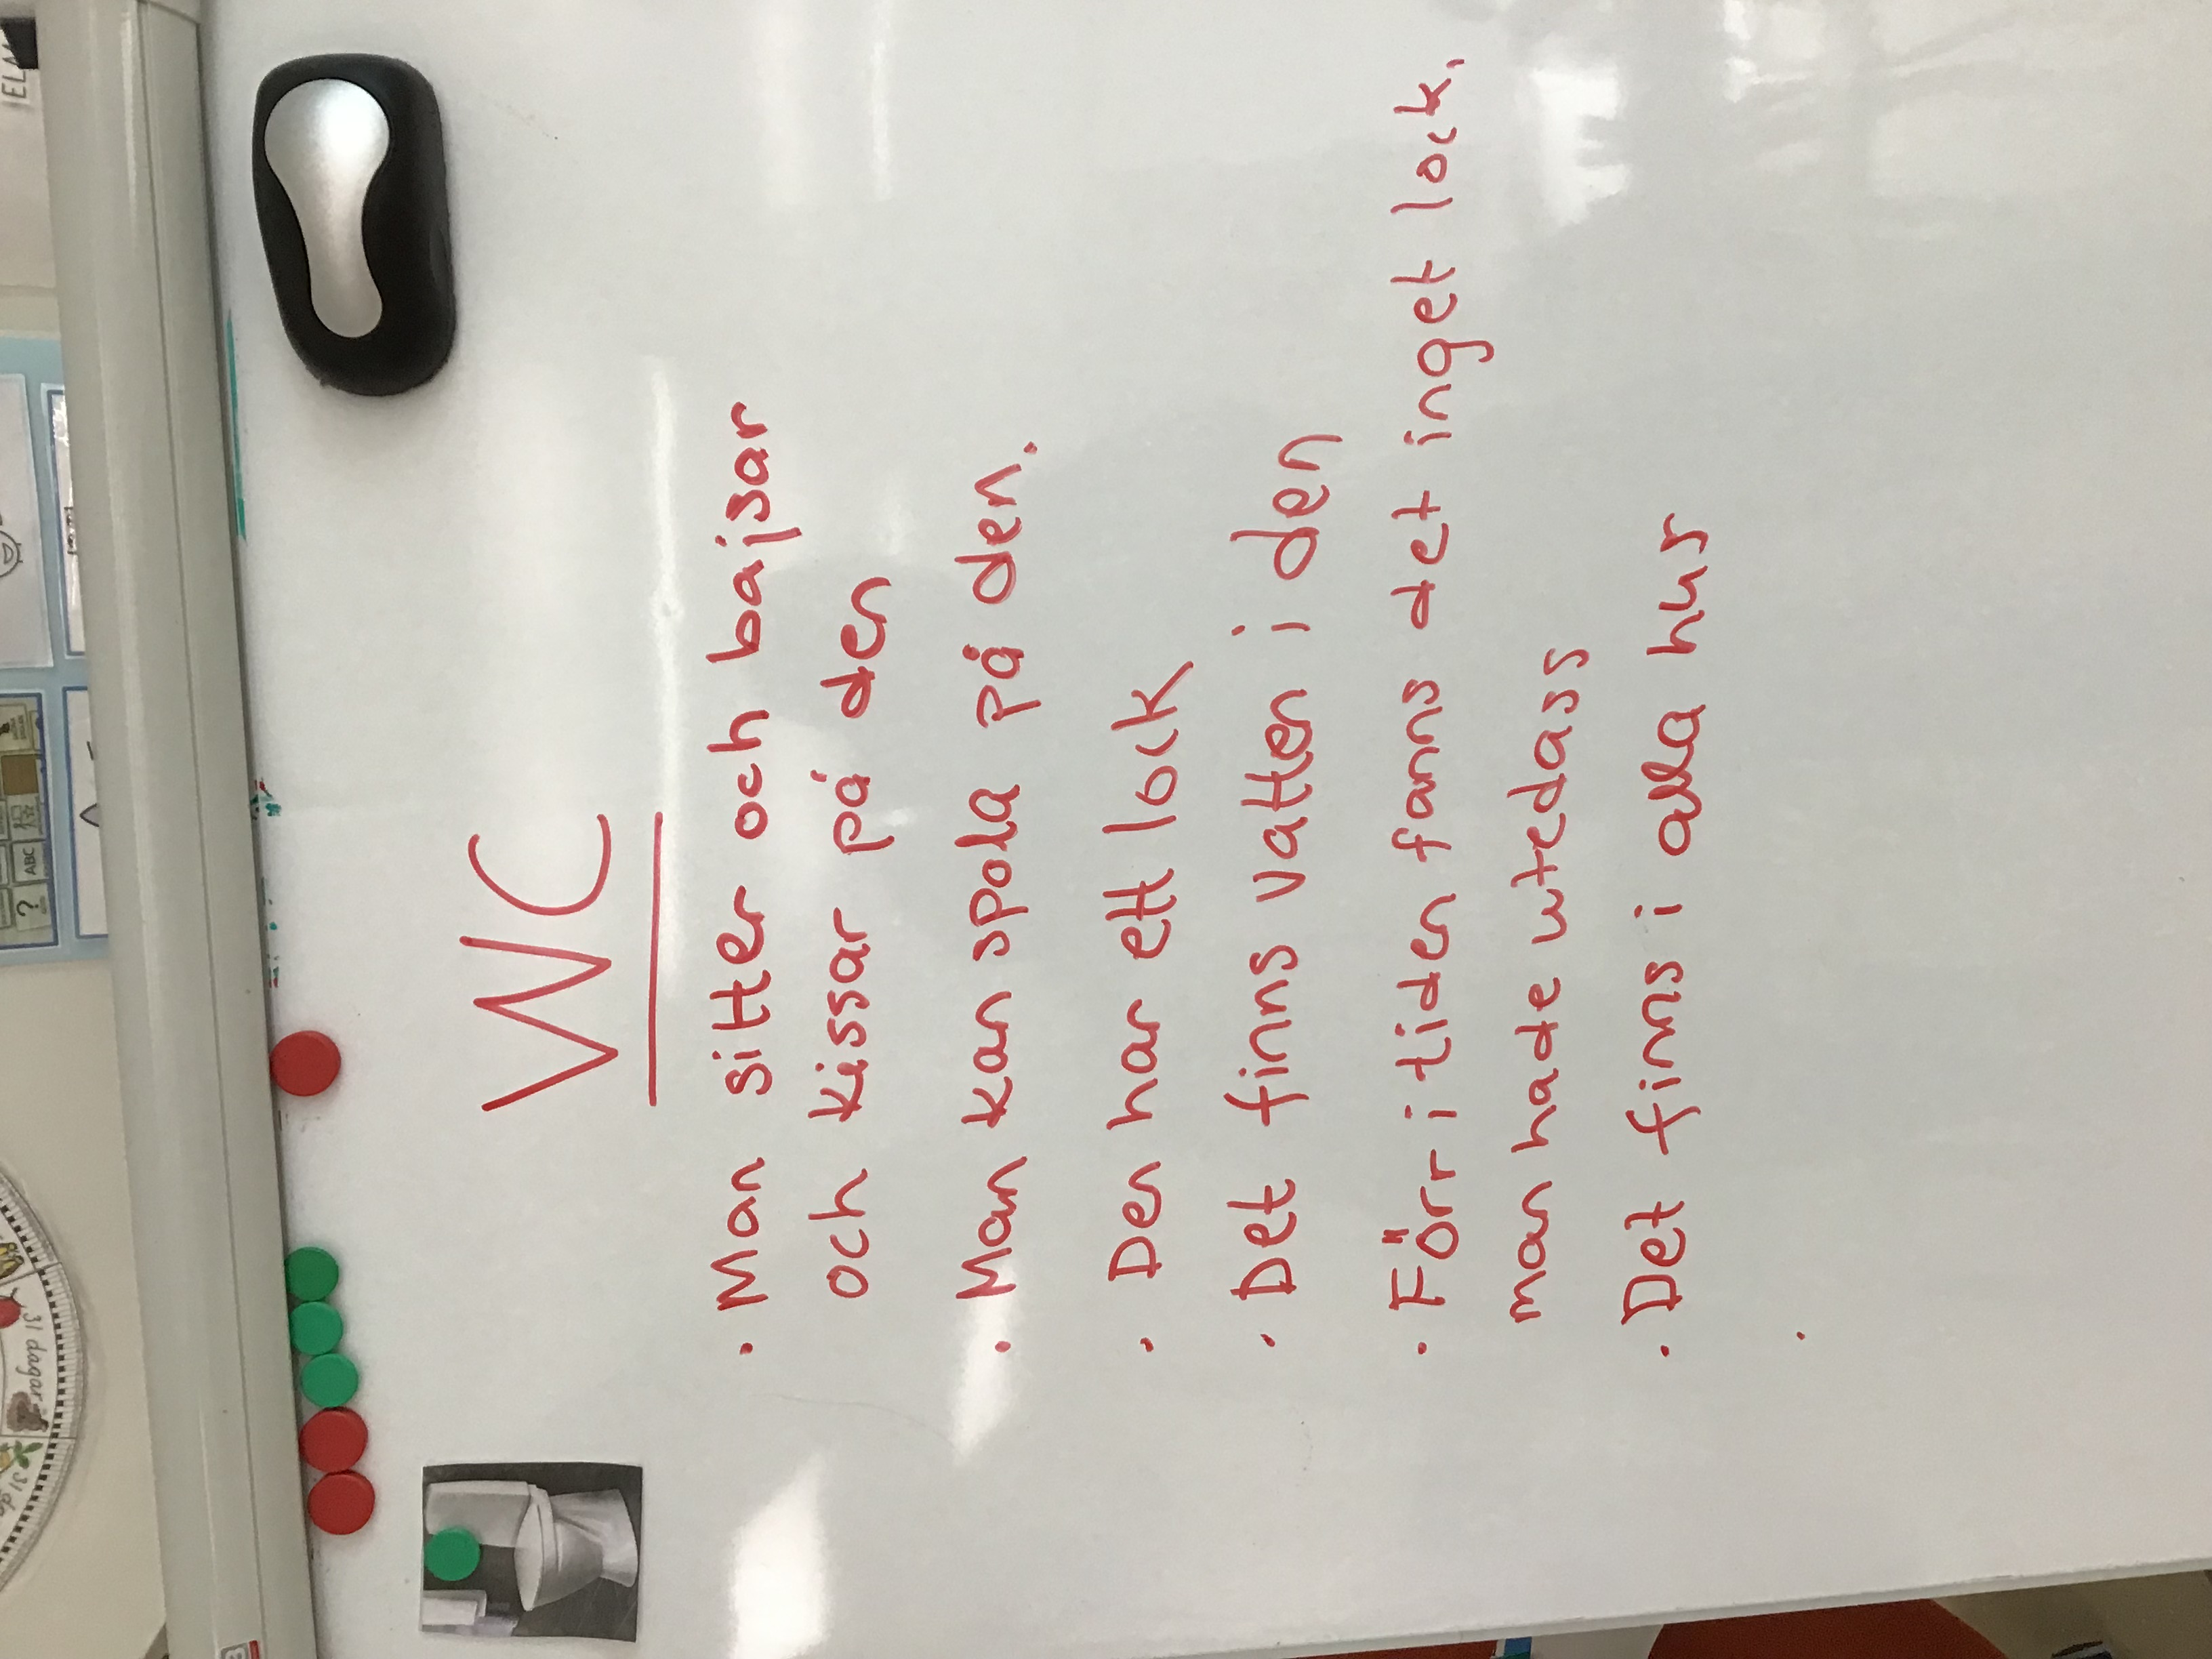 WC
• Man sitter och bajsar
och kissar på den
• Man kan spola på den.
• Den har ett lock
• Det finns vatten i den
• Förr i tiden fanns det inget lock,
man hade utedass
• Det finns i alla hus
•
31 dagar
ABC
?